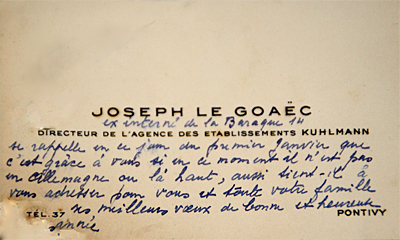 JOSEPH LE GOAËC
ex interné de la Baraque 14
DIRECTEUR DE L'AGENCE DES ETABLISSEMENTS KUHLMANN
se rappelle en ce jour du premier Janvier que
c'est grâce à vous si en ce moment il n'est pas
en Allemagne ou là haut, aussi tient-il à
vous adresser pour vous et toute votre famille
ses meilleurs vœux de bonne et heureuse
TÉL. 37
PONTIVY
année